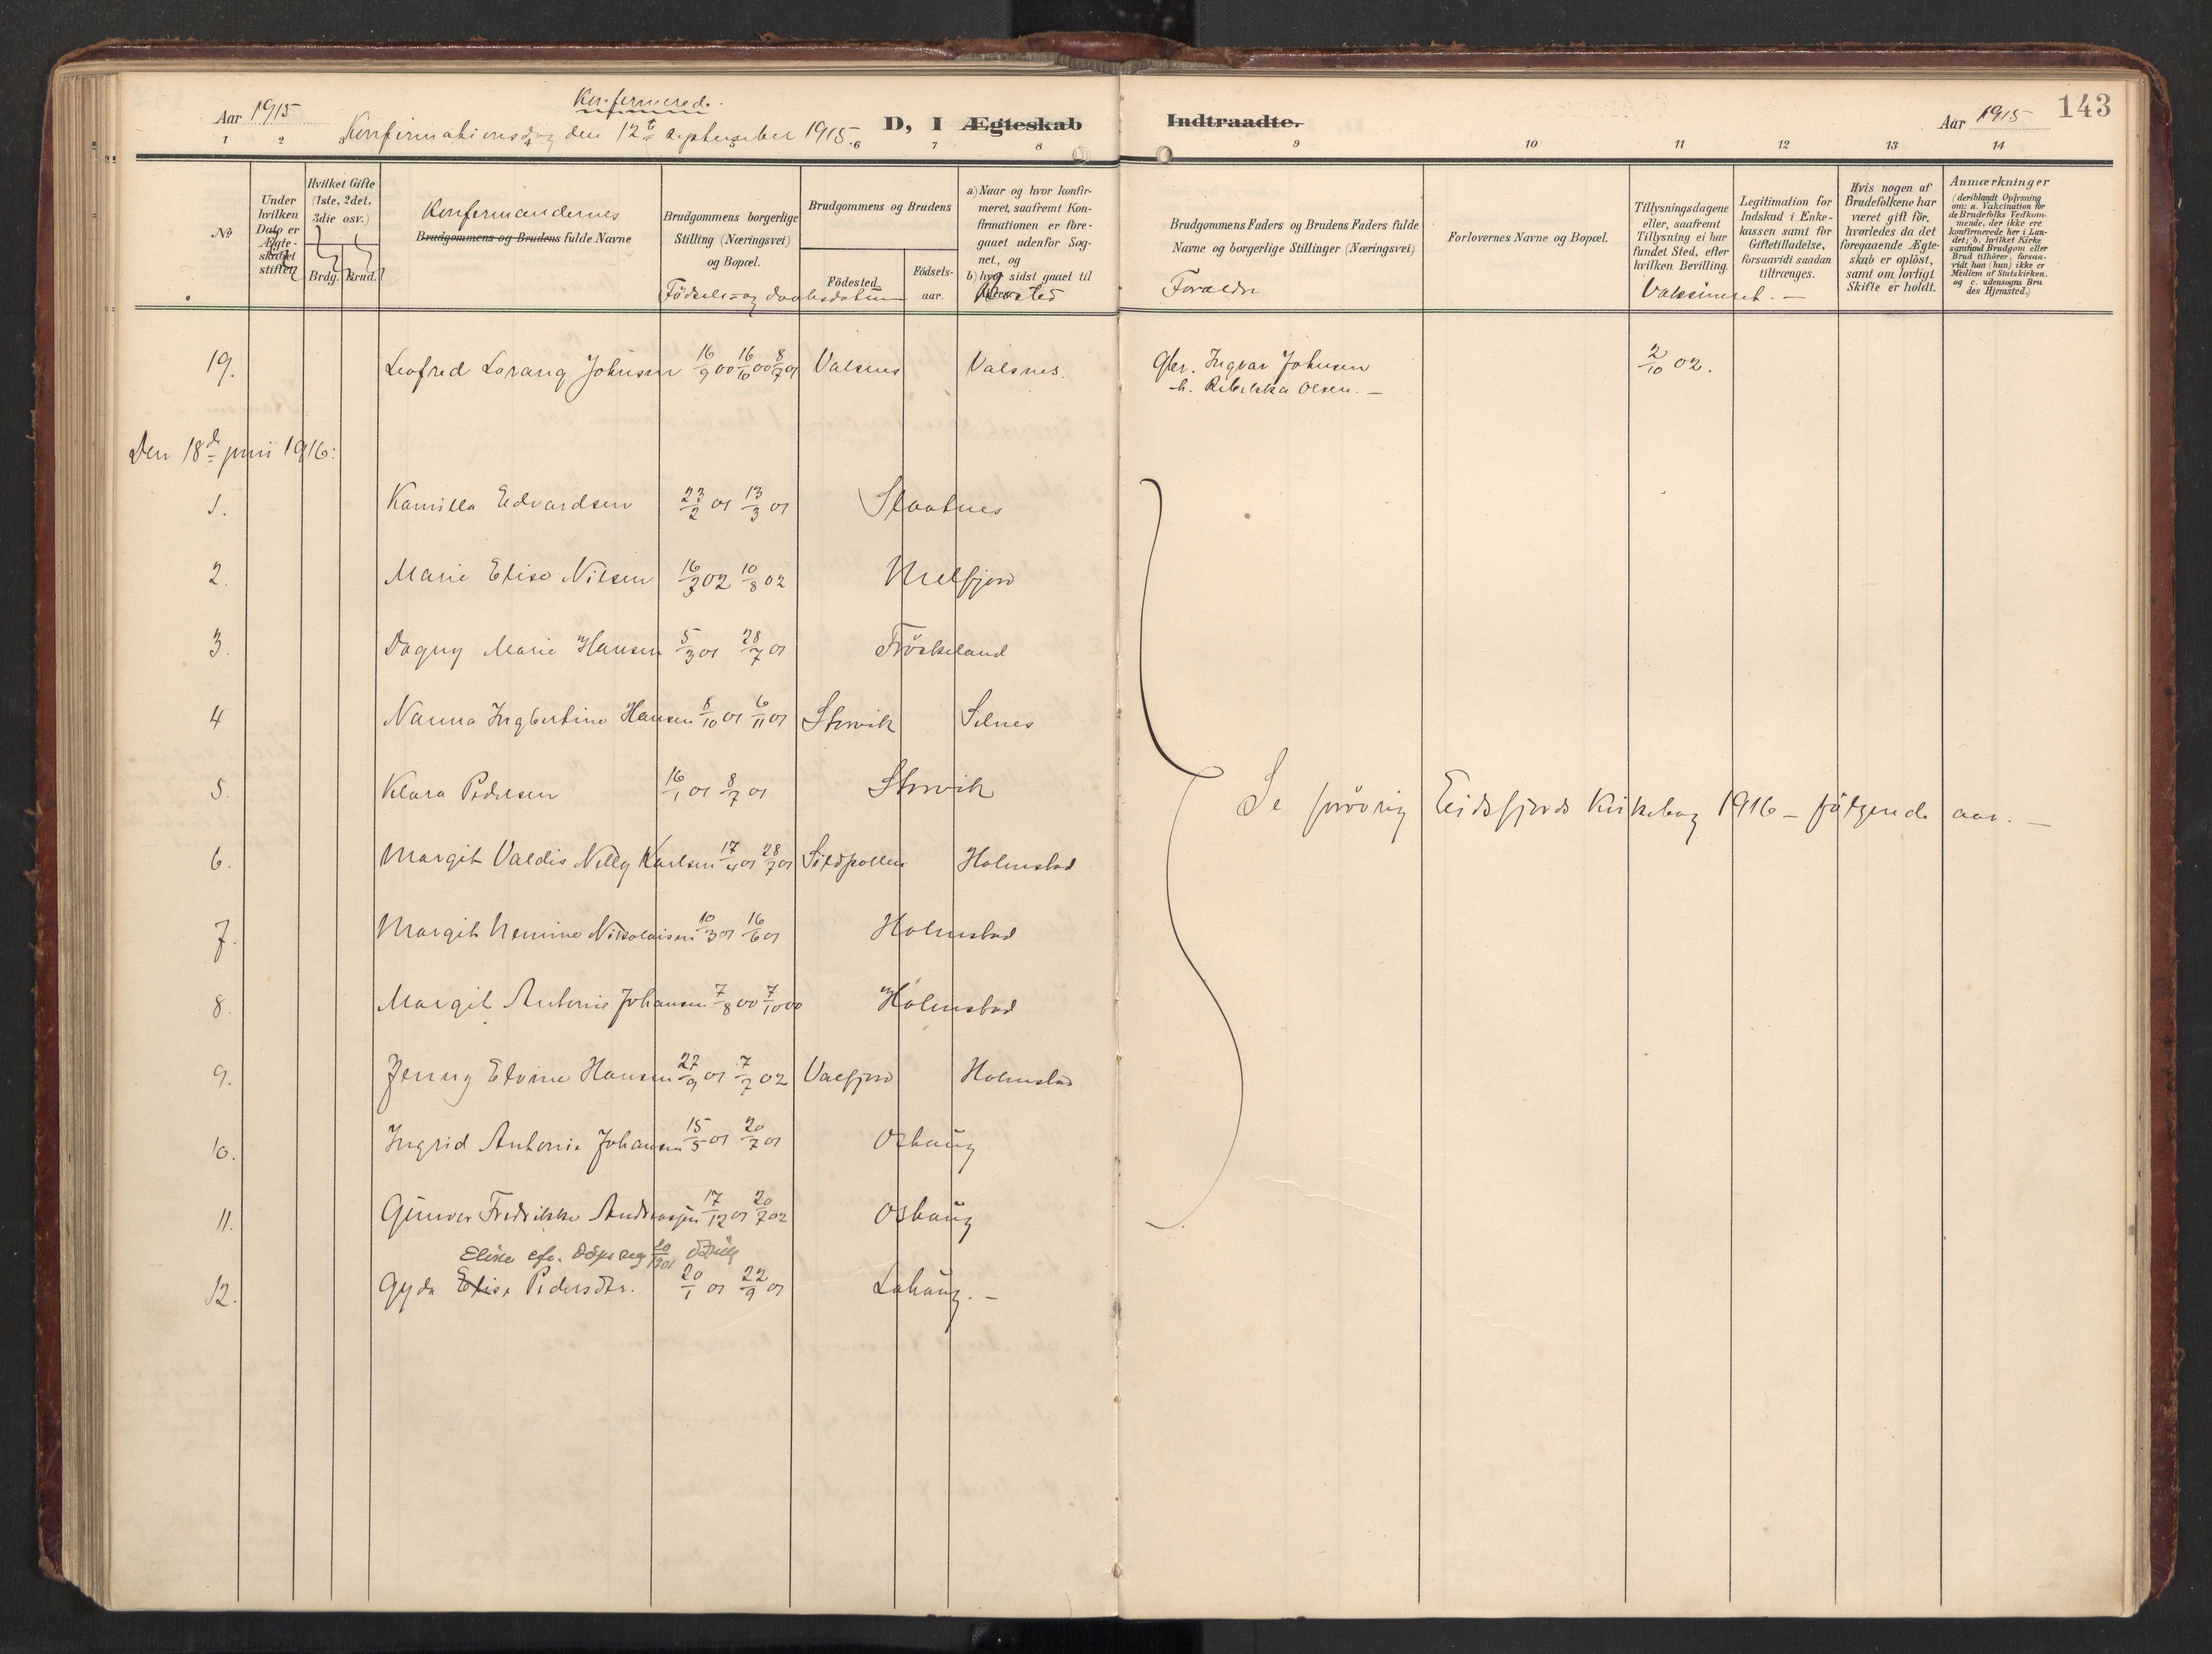 Konfirmerede.
Aar 1915
Konfirmationsdag den 12te september 1915.
D, I Ægteskab
Indtraadte.
Aar 1915
143
1 2 3 4 5 6 7 8 9 10 11 12 13 14
No
Under hvilken Dato er Ægteskabet stiftet
Hvilket Gifte (1ste, 2det, 3die osv.)
Brdg. Brud.
Konfirmandernes
Brudgommens og Brudens fulde Navne
Brudgommens borgerlige Stilling (Næringsvei) og Bopæl.
Födsels- og daabsdatum
Brudgommens og Brudens
Födested
Födselsaar.
a) Naar og hvor konfirmeret, saafremt Konfirmationen er foregaaet udenfor Sognet, og
b) hvor sidst gaaet til
Bosted
Brudgommens Faders og Brudens Faders fulde Navne og borgerlige Stillinger (Næringsvei)
Forældre
Forlovernes Navne og Bopæl.
Tillysningsdagene eller, saafremt Tillysning ei har fundet Sted, efter hvilken Bevilling.
Vaksineret. —
Legitimation for Indskud i Enkekassen samt for Giftetilladelse, forsaavidt saadan tiltrænges.
Hvis nogen af Brudefolkene har været gift för, hvorledes da det foregaaende Ægteskab er oplöst, samt om lovligt Skifte er holdt.
Anmærkninger
(deriblandt Oplysning om: a. Vakcination for de Brudefolks Vedkommende, der ikke ere konfirmerede her i Landet; b. hvilket Kirkesamfund Brudgom eller Brud tilhörer, forsaavidt han (hun) ikke er Medlem af Statskirken. og c. udensogns Brudes Hjemsted.)
19. Leofred Lorang Johnsen 16/9 00 16/10 00 8/7 01 Valsnes Valsnes. Gbr. Ingvar Johnsen 2/10 02.
h. Rebekka Olsen. —
Den 18de juni 1916:
1. Kamilla Edvardsen 23/2 01 13/3 01 Slaatnes
2. Marie Elise Nilsen 16/3 02 10/8 02 Melfjord
3. Dagny Marie Hansen 5/3 01 28/7 01 Fröskeland
4 Nanna Ingbertine Hansen 8/10 01 6/11 01 Storvik Selnes
5. Klara Pedersen 16/1 01 8/7 01 Storvik
Se forövrig Eidsfjords Kirkebog 1916 — fölgende aar. —
6. Margit Valdis Nelly Karlsen 17/4 01 28/7 01 Sildpollen Holmstad
7. Margit Nemine Nikolaisen 10/3 01 16/6 01 Holmstad
8. Margit Antonie Johansen 7/8 00 7/10 00 Holmstad
9. Jenny Elvine Hansen 27/9 01 7/7 02 Valfjord Holmstad
10. Ingrid Antonie Johansen 15/5 01 20/7 01 Oshaug
11. Gunvor Fredrikke Andreassen 17/12 01 20/7 02 Oshaug
Eline efr. Döps reg
12. Gyda Elise Pedersdtr. 20/1 01 22/9 01 Lahaug. —